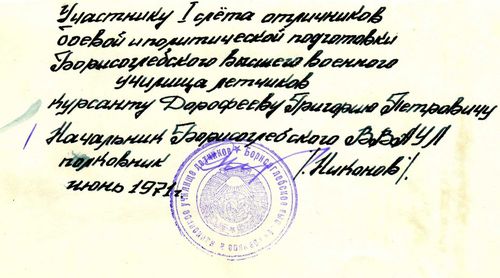 Участнику I слёта отличников
боевой и политической подготовки
Борисоглебского Высшего военного
училища летчиков
курсанту Дорофееву Григорию Петровичу
Начальник Борисоглебского ВВАУЛ
полковник /Никонов/.
июнь 1971г
училище летчиков ★ Борисоглебское